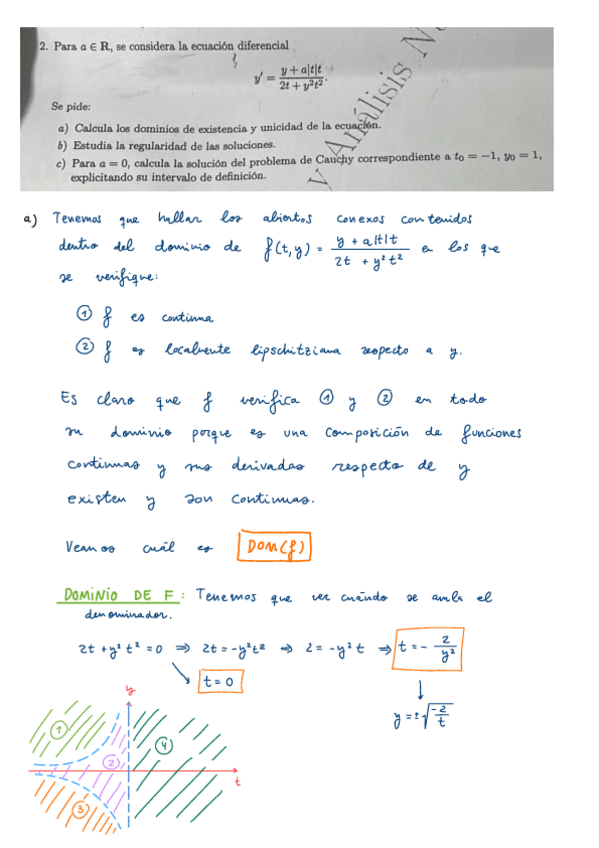 2. Para a ∈ R, se considera la ecuación diferencial
y' = (y + a|t|t) / (2t + y²t²).
Se pide:
a) Calcula los dominios de existencia y unicidad de la ecuación.
b) Estudia la regularidad de las soluciones.
c) Para a = 0, calcula la solución del problema de Cauchy correspondiente a t₀ = −1, y₀ = 1,
explicitando su intervalo de definición.
V Análisis
a) Tenemos que hallar los abiertos conexos contenidos
dentro del dominio de f(t,y) = (y + a|t|t) / (2t + y²t²) en los que
se verifique:
① f es continua
② f es localmente lipschitziana respecto a y.
Es claro que f verifica ① y ② en todo
su dominio porque es una composición de funciones
continuas y sus derivadas respecto de y
existen y son continuas.
Veamos cuál es DOM(f)
DOMINIO DE F: Tenemos que ver cuándo se anula el
denominador.
2t + y² t² = 0 ⇒ 2t = -y²t² ⇒ 2 = -y²t ⇒ t = - 2/y²
t = 0
y = ±√(-2/t)
y
① ② ③ ④
t